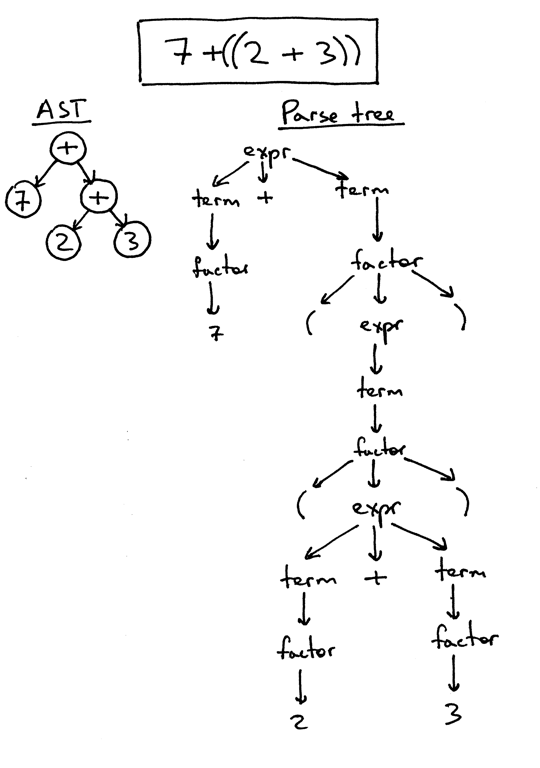 7 + ((2 + 3))
AST
Parse tree
+
7 +
2 3
expr
term + term
factor factor
7 ( expr )
term
factor
( expr )
term + term
factor factor
2 3